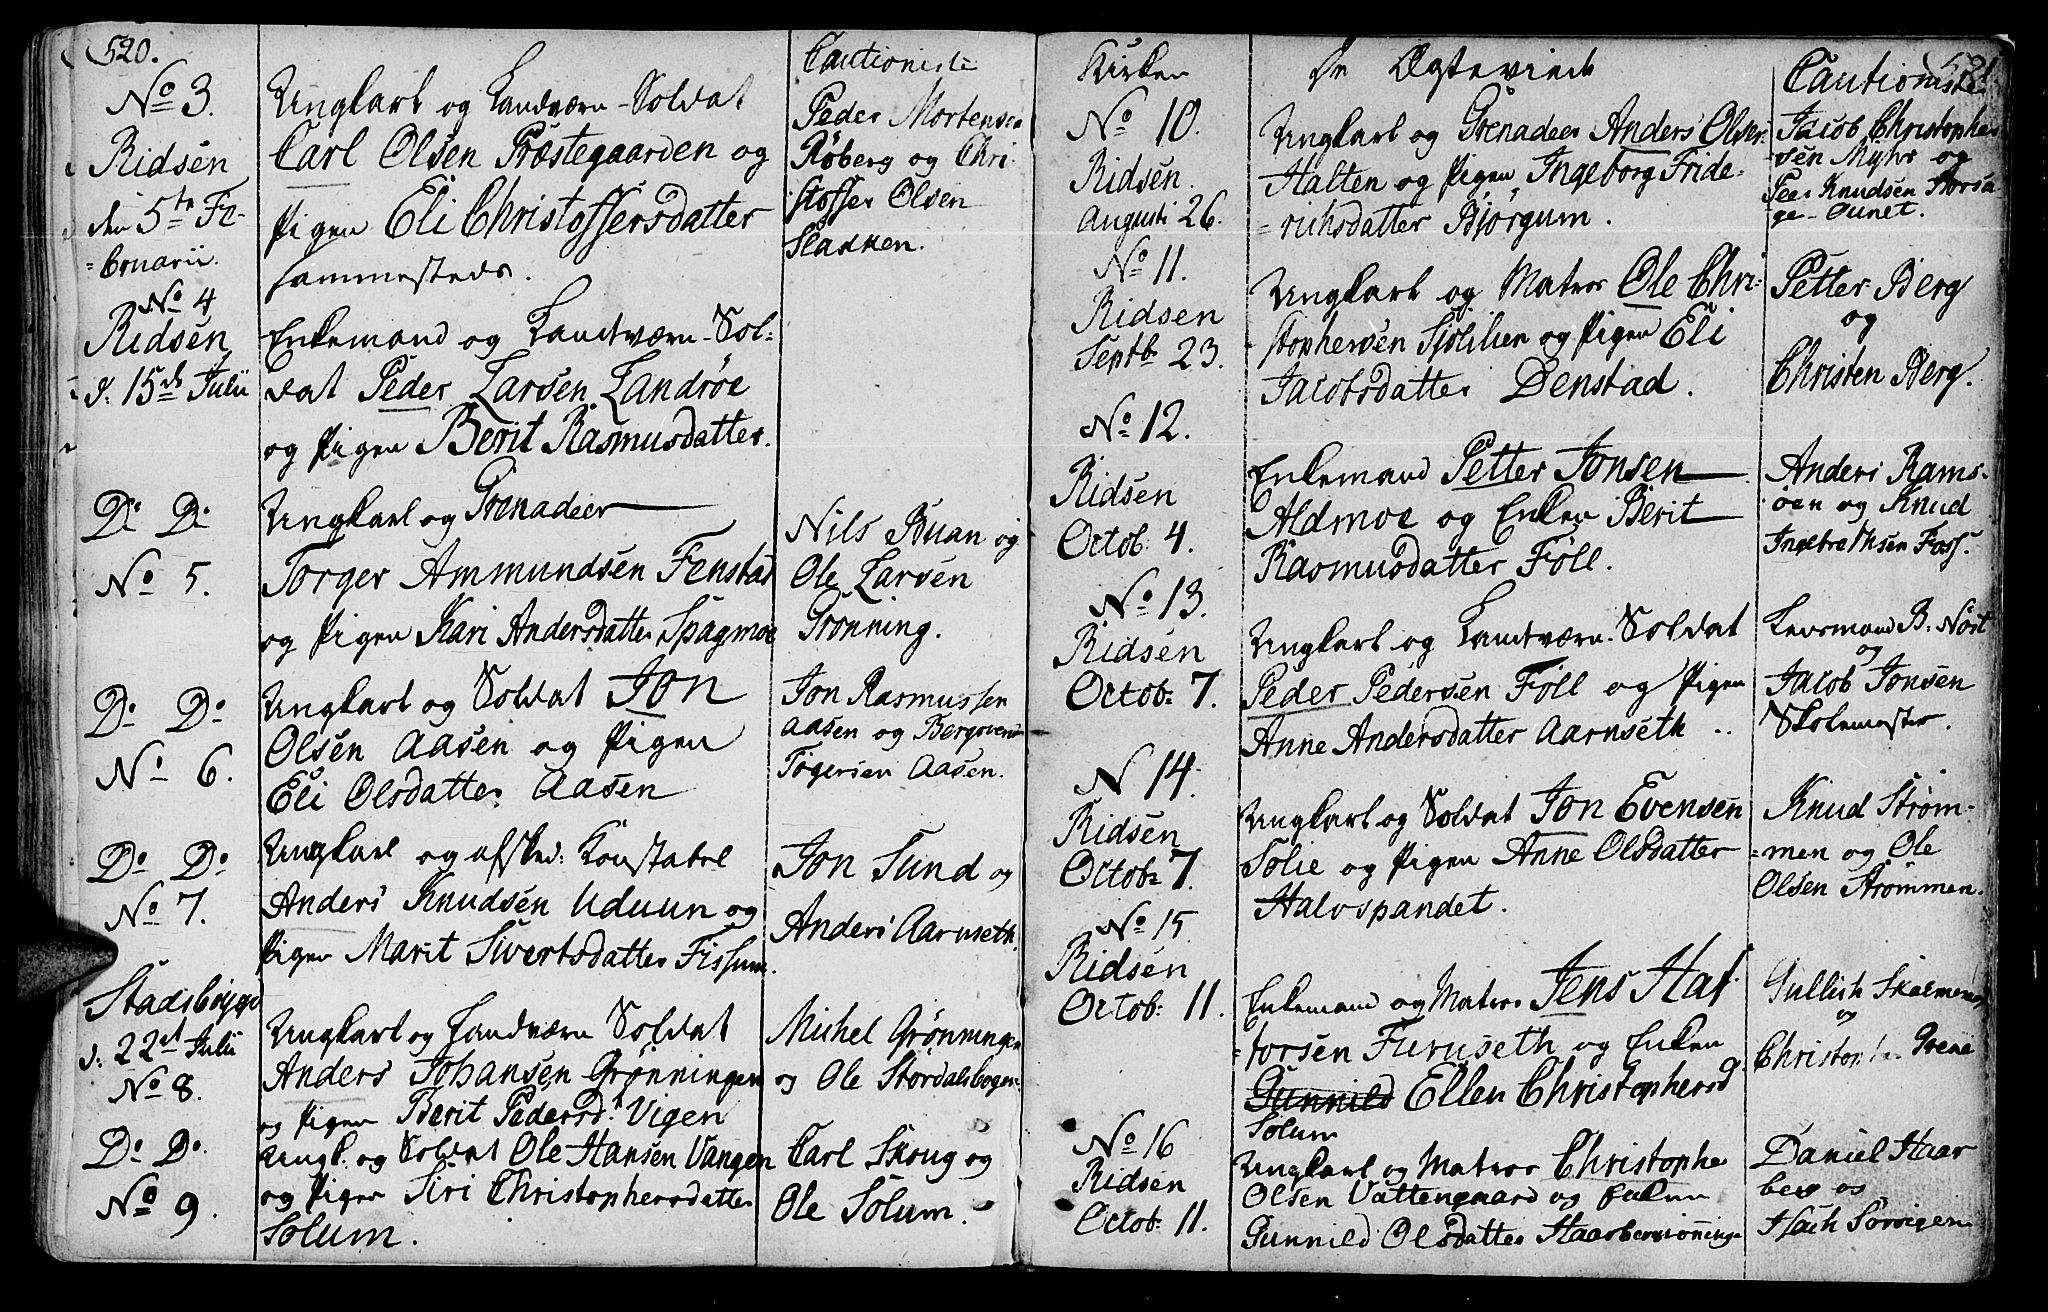 520.
Cautioniste
No 3.
Ridsen
den 5te Fe-
=bruarii.
Ungkarl og Landværn-Soldat
Carl Olsen Præstegaarden og
Pigen Eli Christoffersdatter
sammesteds.
Peder Mortensen
Røberg og Chri-
stoffer Olsen
Sladken.
No 4
Ridsen
d. 15de Julii
Enkemand og Landværn-Sol-
dat Peder Larsen Landrøe
og Pigen Berit Rasmusdatter.
Do Do
No 5.
Ungkarl og Grenadeer
Torger Ammundsen Fenstad
og Pigen Kari Andersdatter Spagmoe
Nils Buan og
Ole Larsen
Grønning.
Do Do
No 6.
Ungkarl og Soldat Jon
Olsen Aasen og Pigen
Eli Olsdatter Aasen
Jon Rasmussen
Aasen og
Aasen.
Do Do
No 7.
Ungkarl og afsked: Konstabel
Anders Knudsen Uduun og
Pigen Marit Sivertsdatter Fissum.
Jon Sund og
Anders Aarnseth.
Stadsbøygd
d. 22de Julii
No 8.
Ungkarl og Landværn Soldat
Anders Johansen Grønningen
og Pigen Berit Pedersd. Vigen
Michel Grønningen
og Ole Stordalsbogen
Do Do.
No 9.
Ungk. og Soldat Ole Hansen Vangen
og Pigen Siri Christophersdatter
Solum.
Carl Skoug og
Ole Solum.
521.
Kirken
De Ægteviede
Cautioniste
No 10.
Ridsen.
Augusti 26.
Ungkarl og Grenadeer Anders Olsen
Halten og Pigen Ingeborg Fride-
=richsdatter Bjørgum.
Jacob Christopher-
sen Myhr og
Peer Knudsen
No 11.
Ridsen
Septb. 23.
Ungkarl og Matros Ole Chri-
stophersen Sjølilien og Pigen Eli
Jacobsdatter Denstad.
Petter Berg
og
Christen Berg.
No 12.
Ridsen
Octob: 4.
Enkemand Petter Jonsen
Aldmoe og Enken Berit
Rasmusdatter Föll.
Anders Rams-
øen og Knud
Ingebrethsen Foss.
No 13.
Ridsen
Octob: 7.
Ungkarl og Landværn-Soldat
Peder Pedersen Föll og Pigen
Anne Andersdatter Aarnseth..
Lensmand B: Nöst
og
Jacob Jonsen
Skolemester.
N 14.
Ridsen
Octob: 7.
Ungkarl og Soldat Jon Evensen
Solie og Pigen Anne Olsdatter
Halvspandet.
Knud Strøm-
=men og Ole
Olsen Strømmen.
No 15.
Ridsen
Octob: 11.
Enkemand og Matros Jens Haf-
=torsen Furuseth og Enken
Gunnild Ellen Christophersd
Solum
Gullich
og
Christopher Grene
No 16
Ridsen
Octob: 11.
Ungkarl og Matros Christopher
Olsen Vattengaard og Enken
Gunnild Olsdatter
Daniel Haar
berg og
Isach Sørvigen